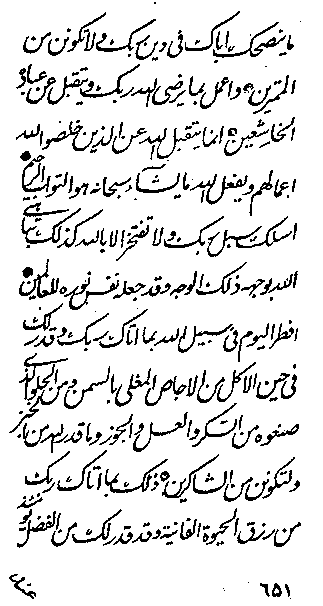 ما ينصحك اياك فی دين ربك ولا تكونن من
الممترين ۞ واعمل بما يرضی الله ربك ويتقبل عن عباده
الخاشعين ۞ انما يتقبل الله عن الذين خلصوا لله
اعمالهم ويفعل الله ما يشاء سبحانه هو التواب الرحيم
اسلك سبيل ربك ولا تفتخر الا بالله كذلك
الله بوجه ذلك الوجه وقد جعله نفس نوره للعالمين
افطر اليوم فی سبيل الله بما اتاك ربك وقدر لك
فی حين الاكل من الاجاص المغلی بالسمن ومن الحلو الذی
صنعوه من السكر والعسل والجوز وما قدر لك من الخبز
ولتكونن من الشاكرين ۞ ذلك بما اتاك ربك
من رزق الحيوة الفانية وقد قدر لك من الفضل
٦٥١